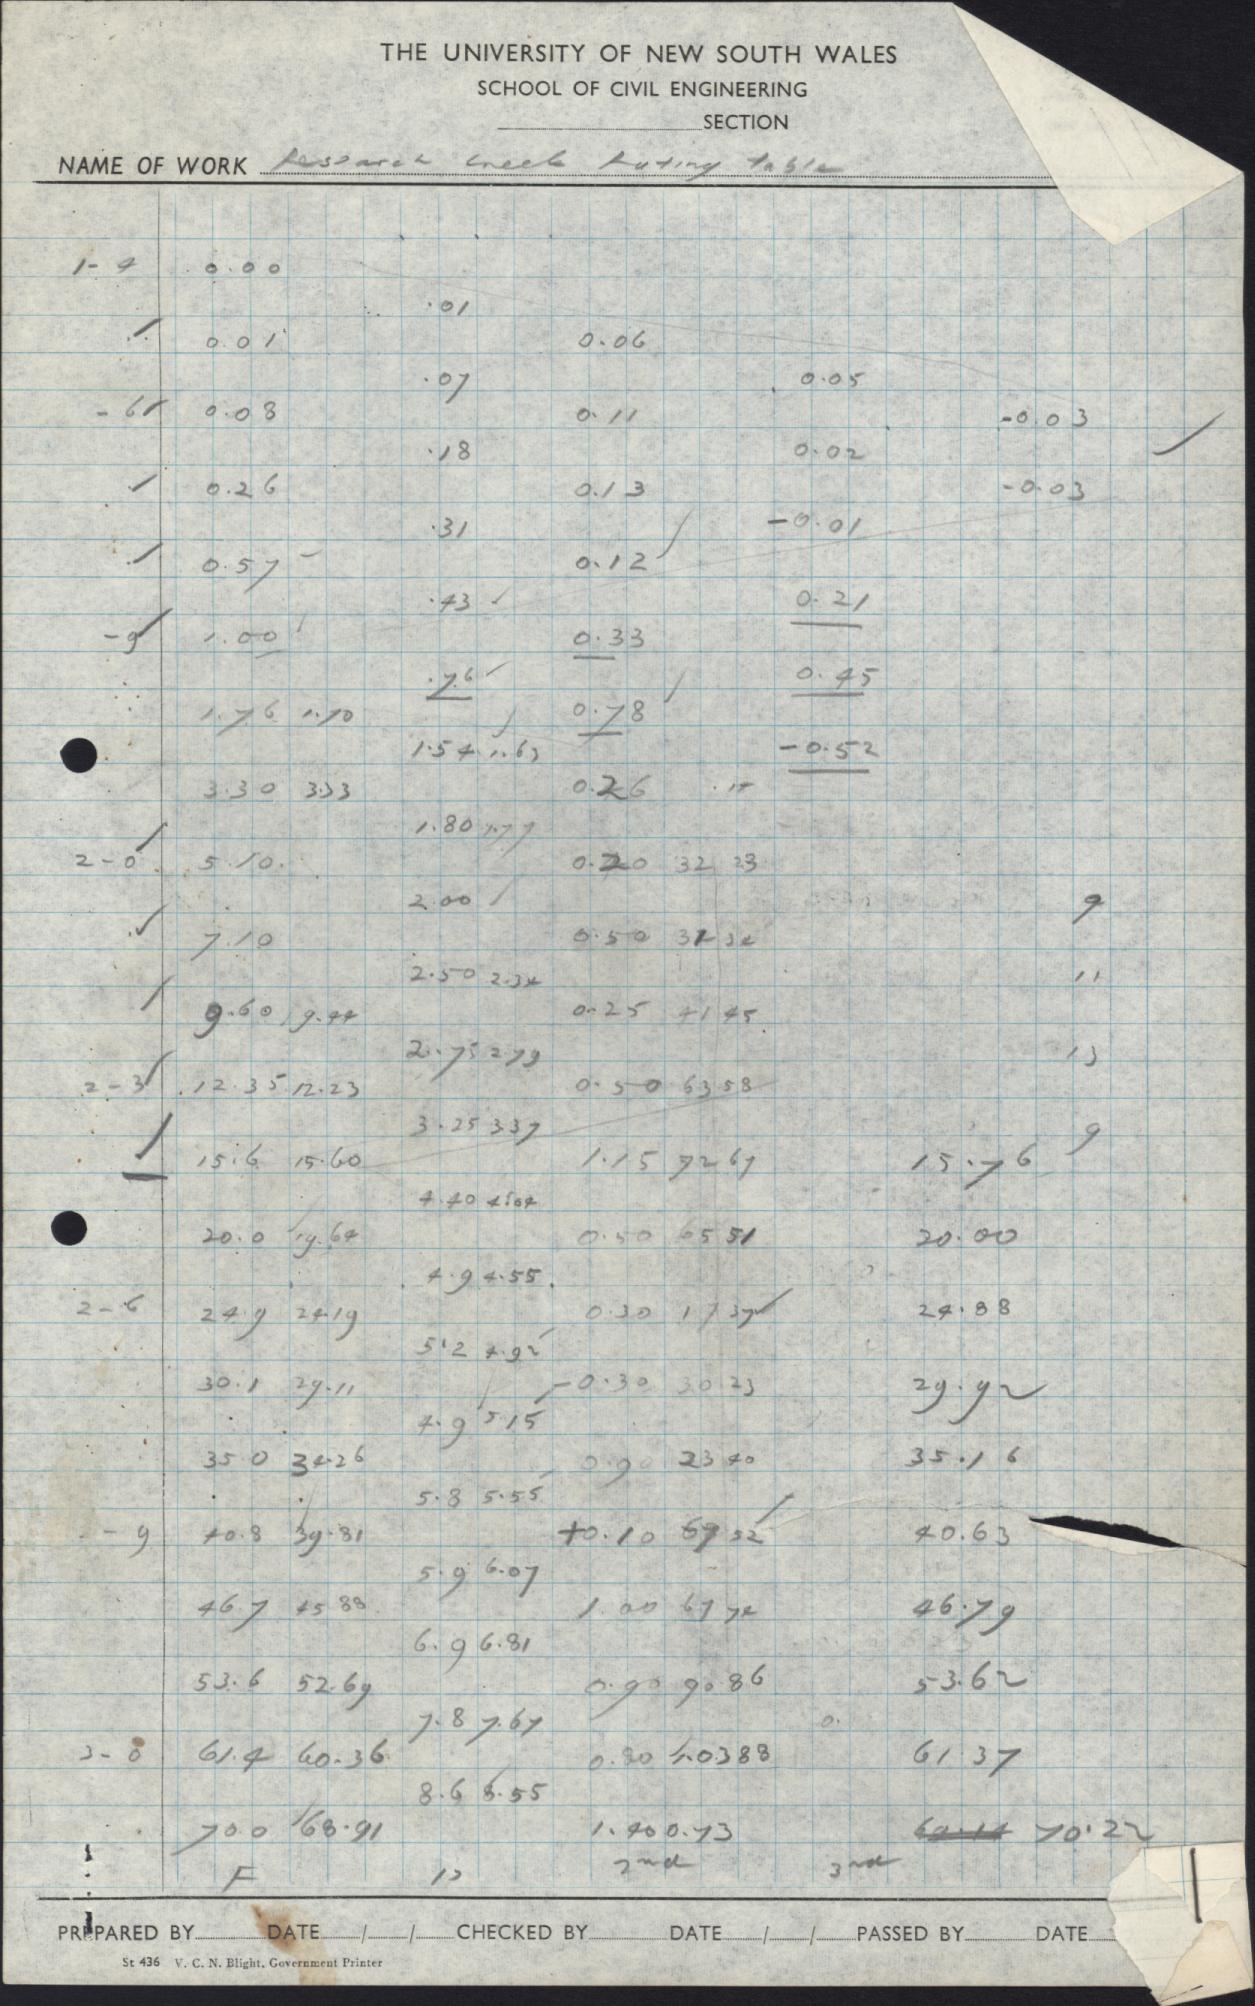 THE UNIVERSITY OF NEW SOUTH WALES
SCHOOL OF CIVIL ENGINEERING
SECTION
NAME OF WORK Research Creek Rating Table
1-4 0.00
.01
0.01 0.06
.07 0.05
-6 0.08 0.11 -0.03
.18 0.02
0.26 0.13 -0.03
.31 -0.01
0.57 0.12
.43 0.21
-9 1.00 0.33
.76 0.45
1.76 1.70 0.78
1.54 1.63 -0.52
3.30 3.33 0.26
1.80 1.77
2-0 5.10 0.20 32 23
2.00 9
7.10 0.50 34
2.50 2.34 11
9.60 9.44 0.25 41 45
2.75 2.79 13
2-3 12.35 12.23 0.50 63 58
3.25 3.37 9
15.6 15.60 1.15 72 67 15.76
4.40 4.04
20.0 19.64 0.50 65 51 20.00
4.9 4.55
2-6 24.9 24.19 0.30 17 37 24.88
5.2 4.92
30.1 29.11 -0.30 30 23 29.92
4.9 5.15
35.0 34.26 0.90 23 40 35.16
5.8 5.55
-9 40.8 39.81 +0.10 69 52 40.63
5.9 6.07
46.7 45.88 1.00 67 74 46.79
6.9 6.81
53.6 52.69 0.90 90 86 53.62
7.8 7.67 0.
3-0 61.4 60.36 0.80 1.03 88 61 37
8.6 8.55
70.0 68.91 1.40 0.73 70.22
F 1D 2nd 3rd
PREPARED BY DATE / / CHECKED BY DATE / / PASSED BY DATE
St 436 V. C. N. Blight, Government Printer